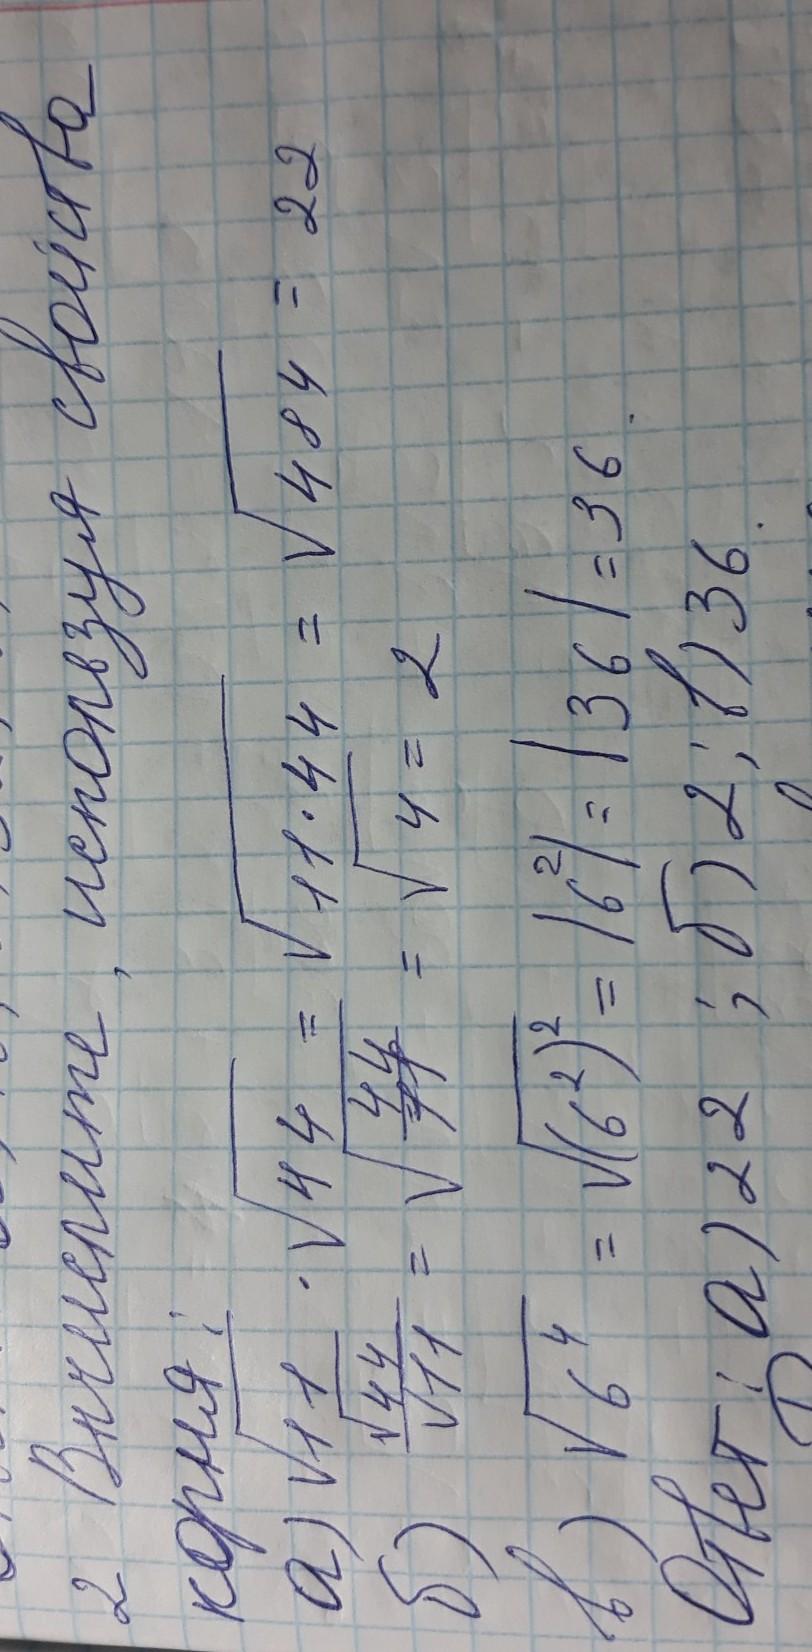 2 Вычислите, используя свойства
корня:
а) √11 · √44 = √11·44 = √484 = 22
б) √44/√11 = √44/11 = √4 = 2
в) √6⁴ = √(6²)² = |6²| = |36| = 36.
Ответ: а) 22; б) 2; в) 36.